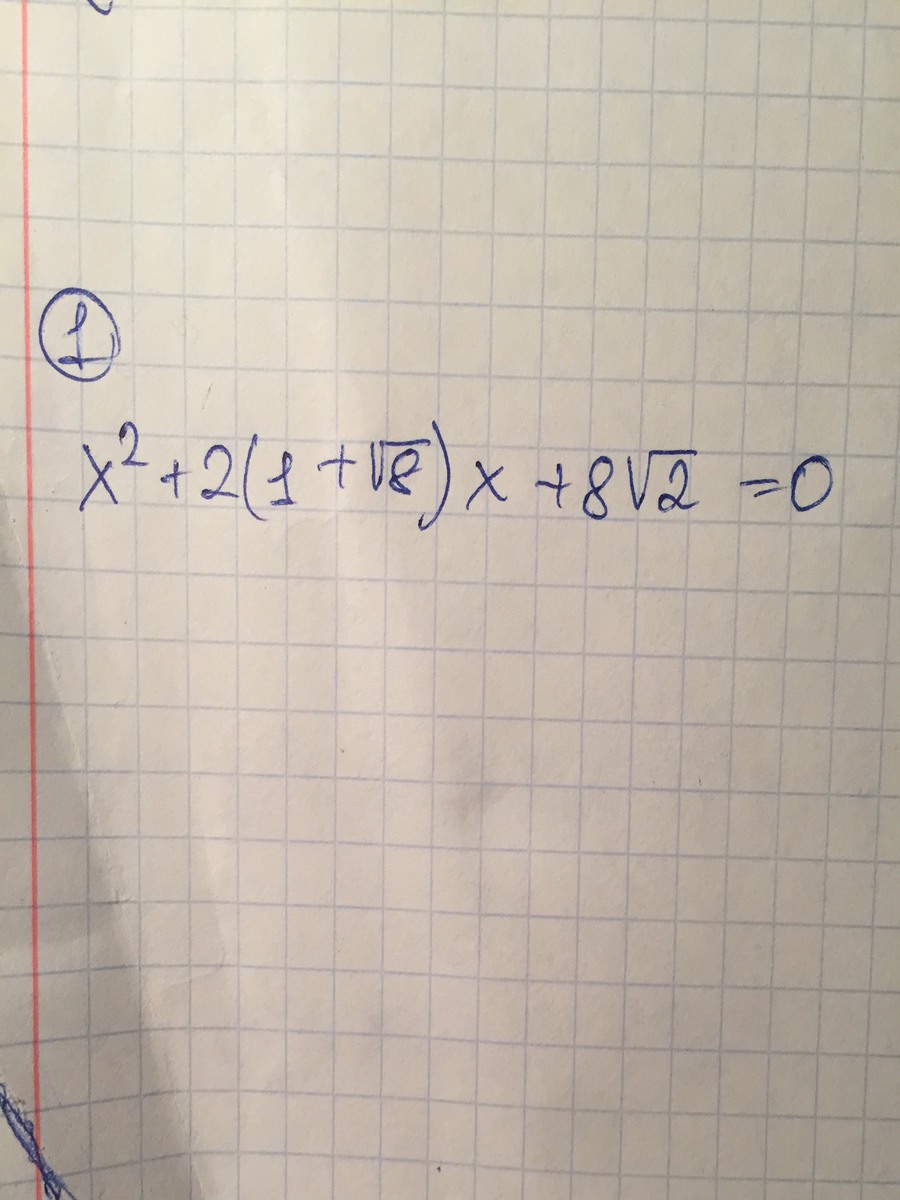 1
x² + 2(1 + √8)x + 8√2 = 0